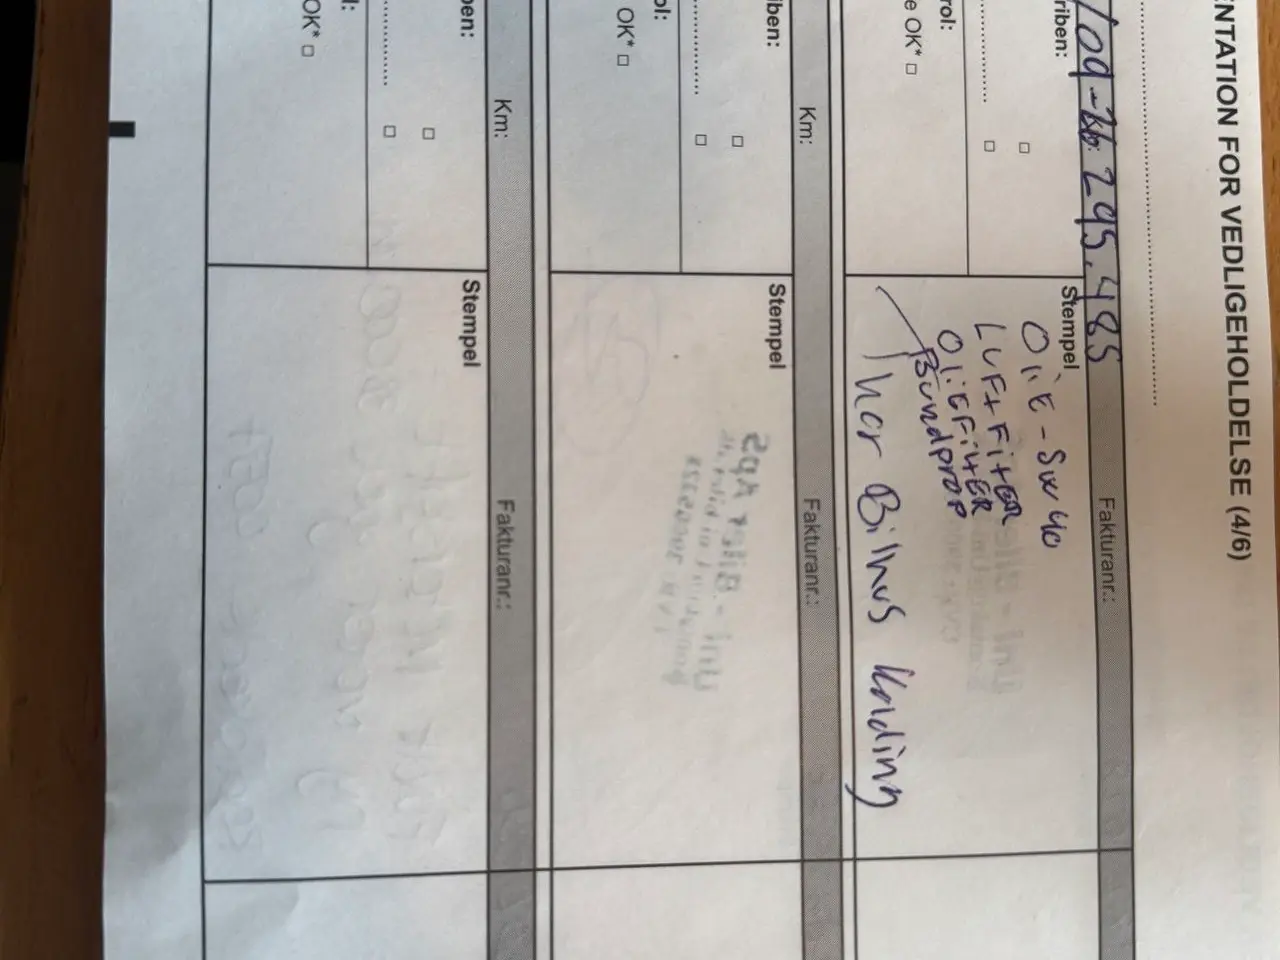 NTATION FOR VEDLIGEHOLDELSE (4/6)
/09-26 295.485
Fakturanr.:
riben:
Stempel
OliE-5w40
LuFtFiltER
OliEFiltER
Bundprop
rol:
e OK*
her Bilhus Kolding
Km:
Fakturanr.:
iben:
Stempel
ol:
OK*
Km:
Fakturanr.:
ben:
Stempel
l:
OK*